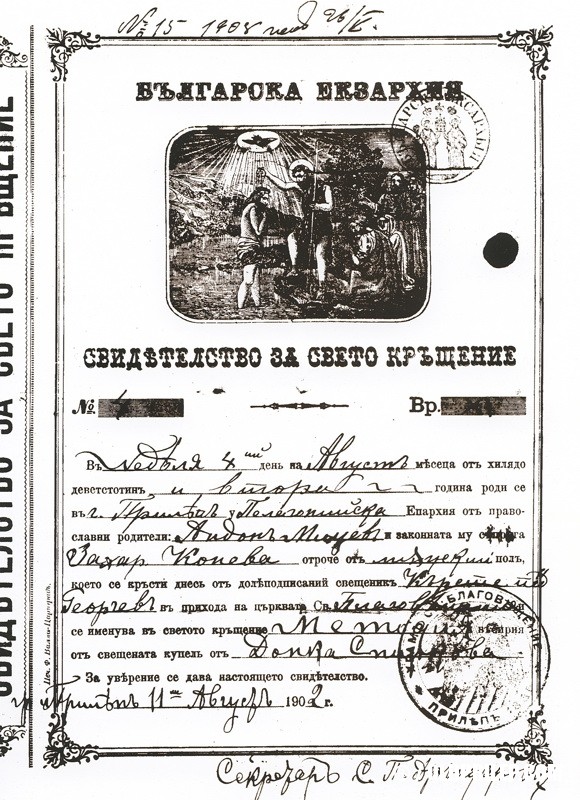 № 15 1908
БЪЛГАРСКА ЕКЗАРХИЯ
СВИДѢТЕЛСТВО ЗА СВЕТО КРЪЩЕНИЕ
СВИДѢТЕЛСТВО ЗА СВЕТО КРЪЩЕНИЕ
№
Вр.
Въ Неделя 4ий день на Августъ мѣсеца отъ хилядо
деветстотинъ и втора година роди се
въ г. Прилѣпъ у Пелагонийска Епархия отъ право-
славни родители: Андонъ и законната му съпруга
Захар Конева отроче отъ мѫжкий полъ,
което се кръсти днесь отъ долѣподписаний свещеникъ
Георгевъ въ прихода на църквата Св. Благовѣщение и
се именува въ светото кръщение въсприя
отъ свещената купель отъ Донка
За уверение се дава настоящето свидѣтелство.
Прилѣпъ 11ий Августъ 1902 г.
БЛАГОВЕЩЕНИЕ
ПРИЛѢПЪ
Секретаръ С.